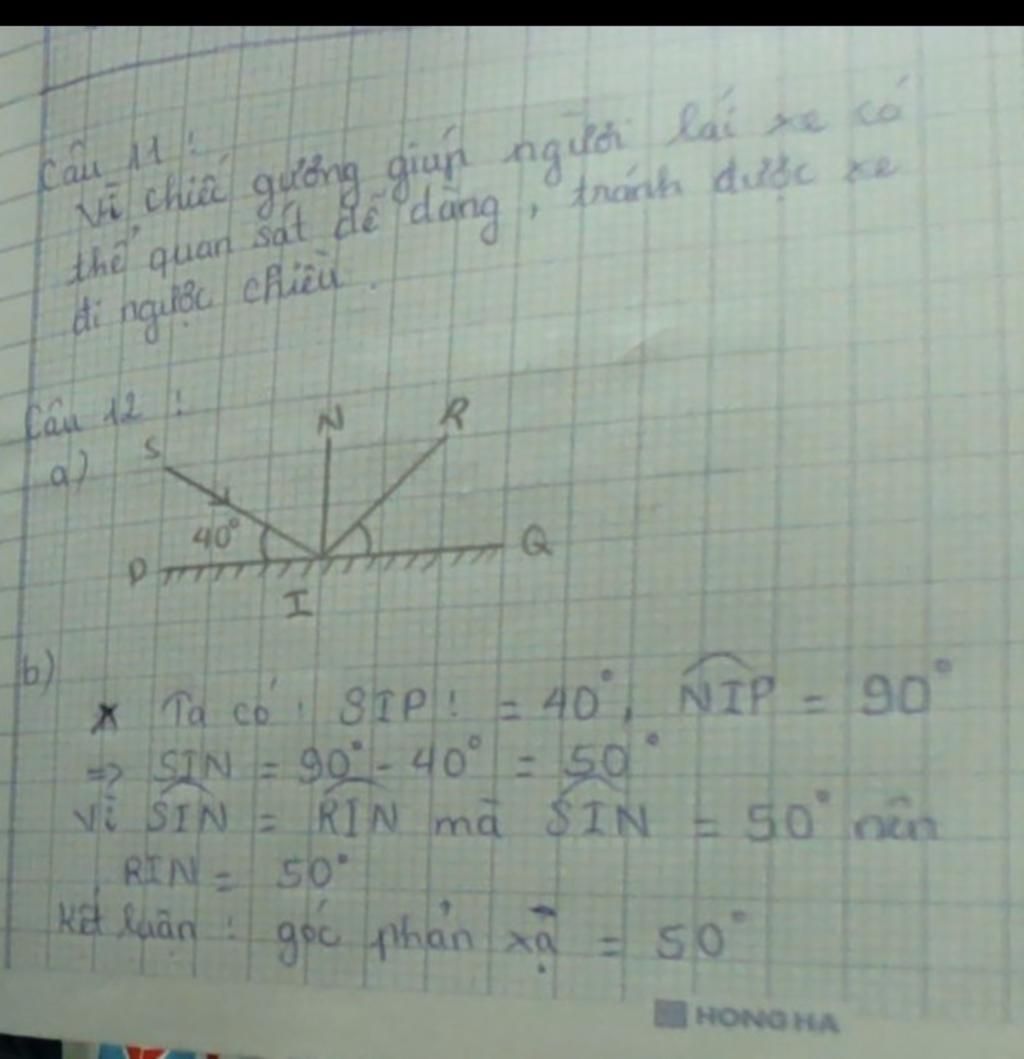 Câu 11 :
Vì chiếc gương giúp người lái xe có
thể quan sát dễ dàng, tránh được xe
đi ngược chiều.
Câu 12 :
a)
S
N
R
40°
P
Q
I
b)
* Ta có : SIP : = 40°, NIP = 90°
=> SIN = 90° - 40° = 50°
Vì SIN = RIN mà SIN = 50° nên
RIN = 50°
Kết luận : góc phản xạ = 50°
HONG HA